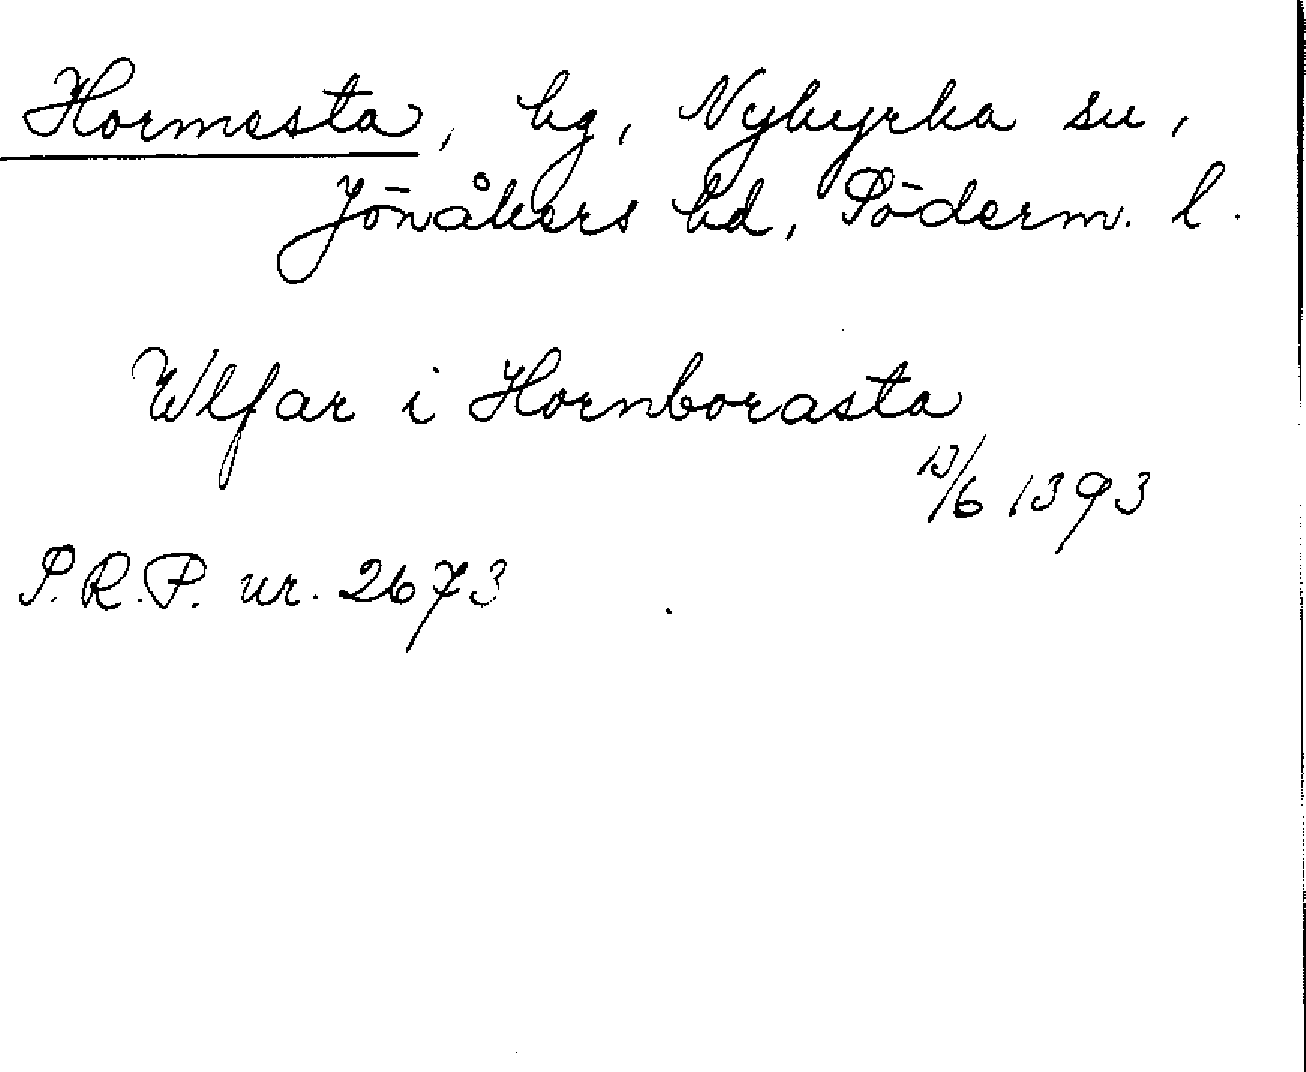 Hormesta, by, Nykyrka sn,
Jönåkers hd, Söderm. l.
Wlfar i Hornborasta
13/6 1393
S.R.P. nr. 2673